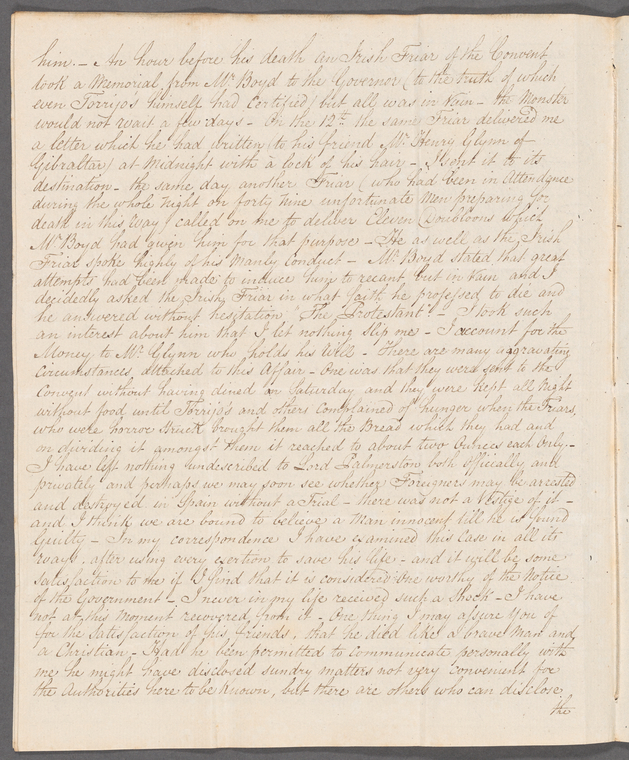 him. – An hour before his death an Irish Friar of the Convent
took a Memorial from Mr. Boyd to the Governor (to the truth of which
even Torrijos himself had Certified) but all was in Vain – the Monster
would not wait a few days – On the 12th the same Friar delivered me
a letter which he had written (to his friend Mr. Henry Glynn of
Gibraltar) at Midnight with a lock of his hair – I sent it to its
destination – the same day another Friar (who had been in Attendance
during the whole Night on forty nine unfortunate Men preparing for
death in this Way) called on me to deliver Eleven Doubloons which
Mr. Boyd had given him for that purpose – He as well as the Irish
Friar spoke highly of his Manly Conduct – Mr. Boyd stated that great
attempts had been made to induce him to recant but in Vain and I
decidedly asked the Irish Friar in what faith he professed to die and
he answered without hesitation "The Protestant" – I took such
an interest about him that I let nothing slip me – I account for the
Money to Mr. Glynn who holds his Will – There are many aggravating
Circumstances attached to this Affair – One was that they were sent to the
Convent without having dined on Saturday and they were kept all Night
without food until Torrijos and others Complained of hunger when the Friars,
who were horror Struck brought them all the Bread which they had and
on dividing it amongst them it reached to about two Ounces each Only –
I have left nothing undescribed to Lord Palmerston both officially and
privately and perhaps we may soon see whether Foreigners may be arrested
and destroyed in Spain without a Trial – there was not a Vestige of it –
and I think we are bound to believe a Man innocent till he is found
Guilty – In my correspondence I have examined this Case in all its
ways, after using every exertion to save his life – and it will be some
satisfaction to me if I find that it is considered One worthy of the Notice
of the Government – I never in my life received such a Shock – I have
not at this Moment recovered from it – One thing I may assure You of
for the Satisfaction of his friends, that he died like a brave Man and
a Christian – Had he been permitted to Communicate personally with
me he might have disclosed sundry matters not very convenient for
the Authorities here to be known, but there are others who can disclose
the